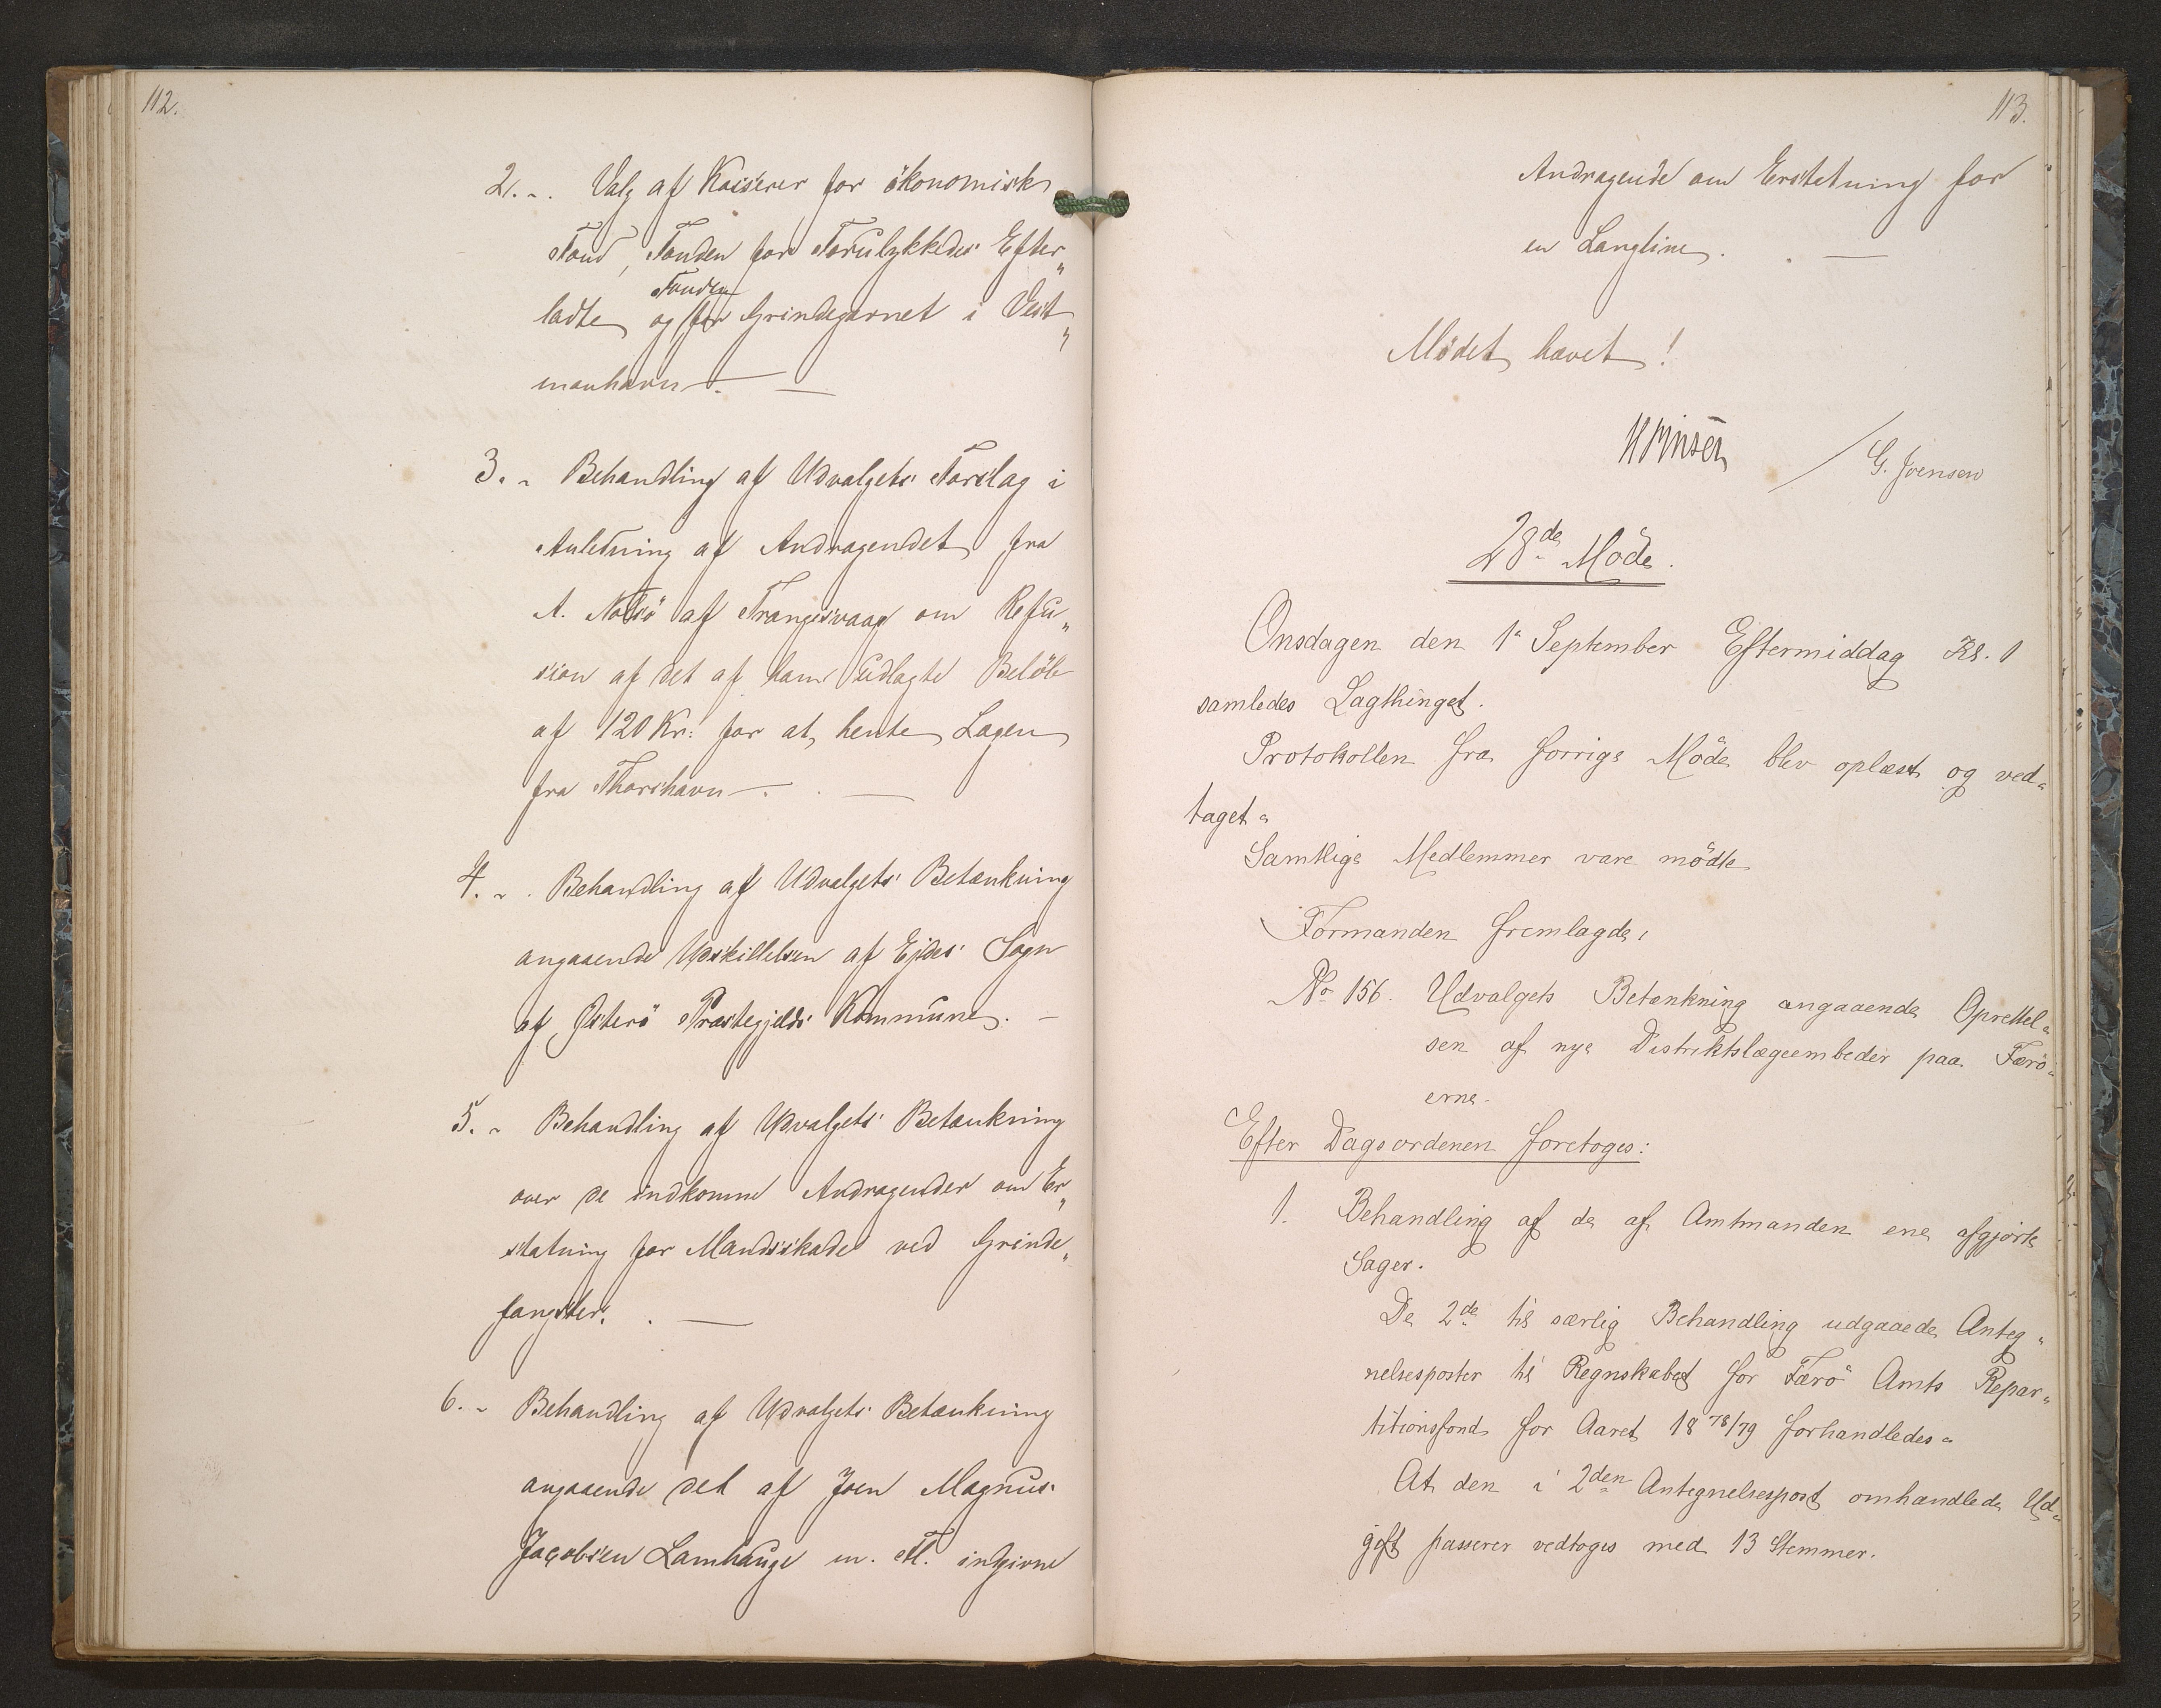 112.
2. -. Valg af Kasserer for ökonomisk
Fond, Fonden for Forulykkedes Efter„
Fonden
ladte og for Grindegarnet i Vest„
manhavn. —
3. - Behandling af Udvalgets Forslag i
Anledning af Andragendet fra
A. Nolsö af Trangisvaag om Refu„
sion af det af ham udlagte Belöb
af 120 Kr. for at hente Lægen
fra Thorshavn. —
4. - Behandling af Udvalgets Betænkning
angaaende Udskillelsen af Ejdes Sogn
af Österö Præstegjelds Kommune. —
5. - Behandling af Udvalgets Betænkning
over de indkomne Andragender om Er„
statning for Mandsskade ved Grinde„
fangster. —
6. - Behandling af Udvalgets Betænkning
angaaende det af Joen Magnus
Jacobsen Lamhauge m. Fl. indgivne
113.
Andragende om Erstatning for
en Langline. —
Mödet hævet!
G. Joensen
28de Möde.
Onsdagen den 1. September Eftermiddag Kl. 1
samledes Lagthinget.
Protokollen fra forrige Möde blev oplæst og ved„
taget.
Samtlige Medlemmer vare mödte
Formanden fremlagde:
No 156. Udvalgets Betænkning angaaende Oprettel„
sen af nye Distriktslægeembeder paa Færö„
erne.
Efter Dagsordenen foretoges:
1. Behandling af de af Amtmanden ene afgjorte
Sager.
De 2de til særlig Behandling udgaaede Anteg„
nelsesposter til Regnskabet for Færö Amts Repar„
titionsfond for Aaret 18 78/79 forhandledes.
At den i 2den Antegnelsespost omhandlede Ud„
gift passerer vedtoges med 13 Stemmer.